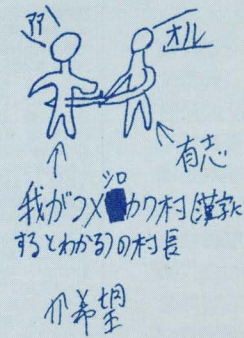 オル
有志
シロ
我がつメカワ村(漢字に
するとわかる)の村長
希望